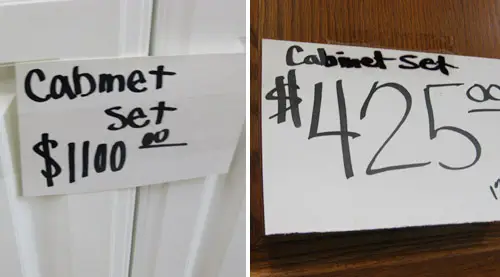 Cabmet
set
$1100 00
Cabinet set
$425 00